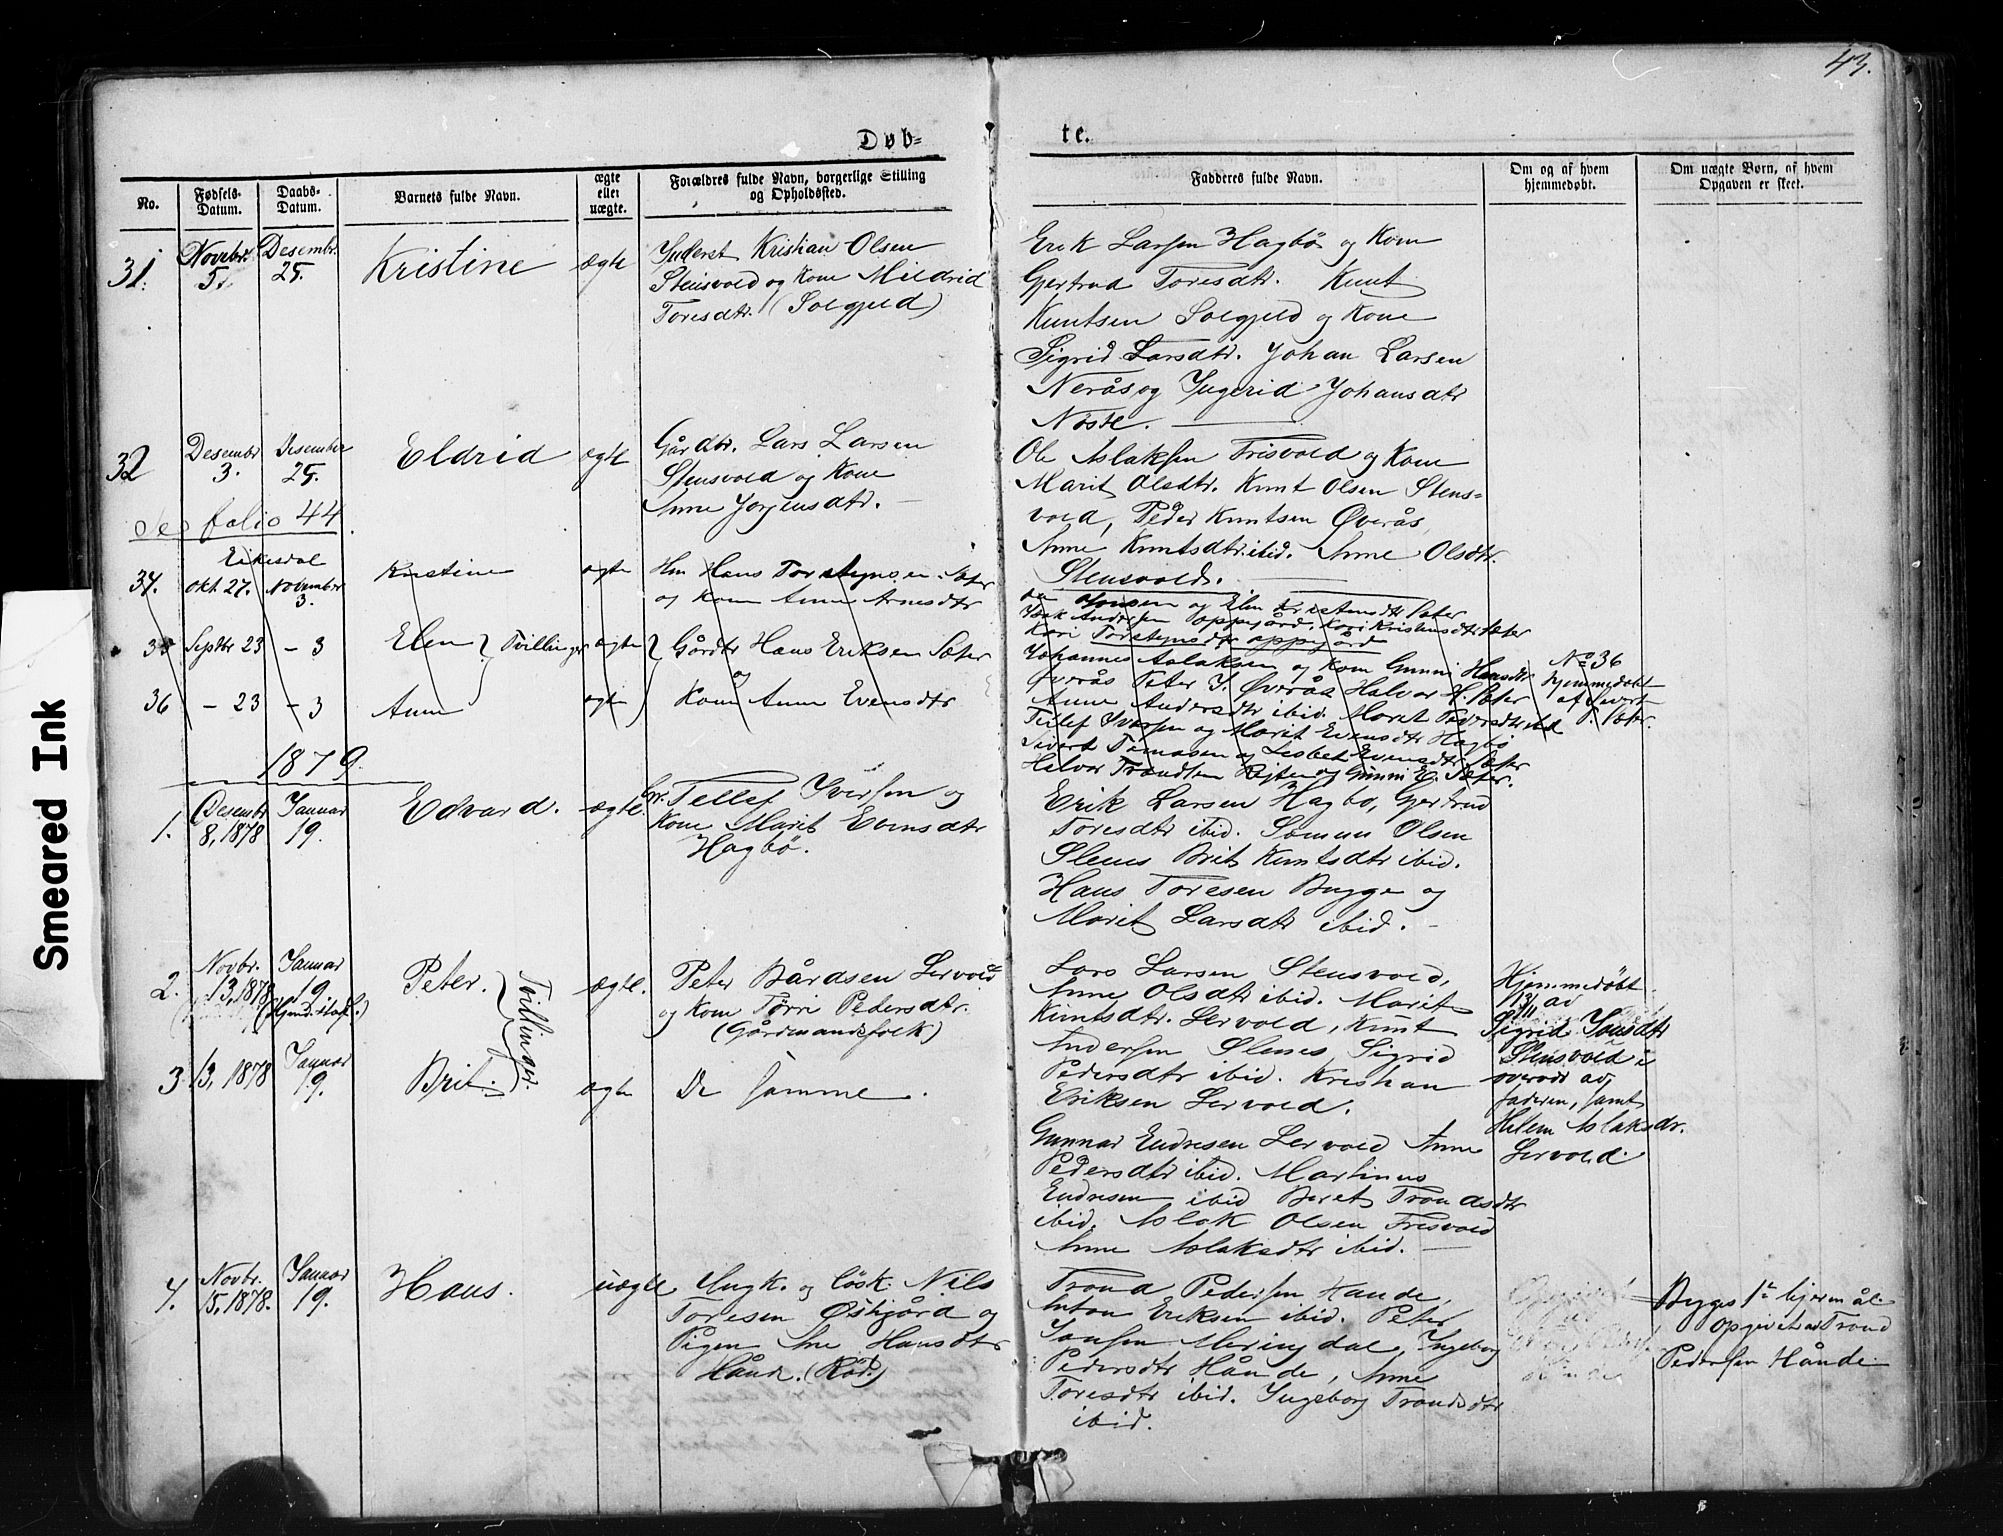 43.
Døb=
te.
No.
Fødsels-
Datum.
Daabs-
Datum.
Barnets fulde Navn.
ægte
eller
uægte.
Forældres fulde Navn, borgerlige Stilling
og Opholdssted.
Fadderes fulde Navn.
Om og af hvem
hjemmedøbt.
Om uægte Børn, af hvem
Opgaven er skeet.
31.
Novbr.
5.
Desembr.
25.
Kristine
ægte
Inderst Kristian Olsen
Stensvold og Kone Mildrid
Toresdtr. (Solgjeld)
Erik Larsen Hagbø og Kone
Gjertrud Toresdtr. Knut
Knutsen Solgjeld og Kone
Sigrid Larsdtr. Johan Larsen
Nerås og Ingerid Johansdtr
Nøste.
32
Desembr
3.
Desember
25.
Eldrid
ægte
Gårdbr. Lars Larsen
Stensvold og Kone
Anne Jørgensdtr.
Ole Aslaksen Frisvold og Kone
Marit Olsdtr. Knut Olsen Stens-
vold, Peder Knutsen Øverås,
Anne Knutsdtr ibid. Anne Olsdtr.
Stensvold.
See folio 44
Eikesdal
34.
Okt. 27.
November
3.
Kristine
ægte
Hans Torstensen Sæter
og Kone Anne Arnesdtr
Jonsen og Elen Kristensdtr Sæter
Andersen Oppigård. Kari Kristensdtr Sæter
Kari Torstensdtr Oppigård
35
Septbr 23
– 3
Elen
Tvillinger
ægte
Gårdbr Hans Eriksen Sæter
og
Kone Anne Evensdtr
36
– 23
– 3
Anne
ægte
Johannes Aslaksen og Kone Gunni Hansdtr
Øverås Peter J. Øverås Halvor H. Sæter
Anne Andersdtr ibid. Marit Pedersdtr ibid
Tellef Iversen og Marit Evensdtr Hagbø
Sivert Tomasen og Lisbet Evensdtr Sæter
Halvor Trondsen og Gunni E. Sæter.
No 36
hjemmedøbt
af Sivert
T. Sæter.
1879.
1.
Desembr
8, 1878
Januar
19.
Edvard.
ægte.
Gr. Tellef Iversen og
Kone Marit Evensdtr
Hagbø.
Erik Larsen Hagbø, Gjertrud
Toresdtr ibid. Simun Olsen
Slenes Brit Knutsdtr ibid.
Hans Toresen Bugge og
Marit Larsdtr ibid.
2.
Novbr.
13, 1878
Januar
19
Peter.
Tvillinger.
ægte.
Peter Bårdsen Lervold
og Kone Tørri Pedersdtr.
(Gårdmandsfolk)
Lars Larsen Stensvold,
Anne Olsdtr ibid. Marit
Knutsdtr. Lervold, Knut
Andersen Slenes, Sigrid
Pedersdtr ibid. Kristian
Eriksen Lervold.
Hjemmedøbt
13/11 av
Sigrid Jonsdtr
Stensvold i
overvær av
faderen, samt
Helene Aslaksdr.
Lervold.
3.
13, 1878
Januar
19.
Brit.
ægte
De samme.
Gunnar Endresen Lervold Anne
Pedersdtr ibid. Martinus
Endresen ibid Beret Trondsdtr
ibid. Aslak Olsen Frisvold
Anne Aslaksdtr ibid.
4.
Novbr.
15, 1878.
Januar
19.
Hans.
uægte
Ungk. og løsk. Nils
Toresen Østigård og
Pigen Ane Hansdtr
Hånde. (Rød)
Trond Pedersen Hånde,
Anton Eriksen ibid. Peter
Jonsen Meringdal, Ingeborg
Pedersdtr Hånde, Anne
Toresdtr ibid. Ingeborg Trondsdtr
ibid.
Begges 1te lejermål.
Opgivet av Trond
Pedersen Hånde
Smeared Ink